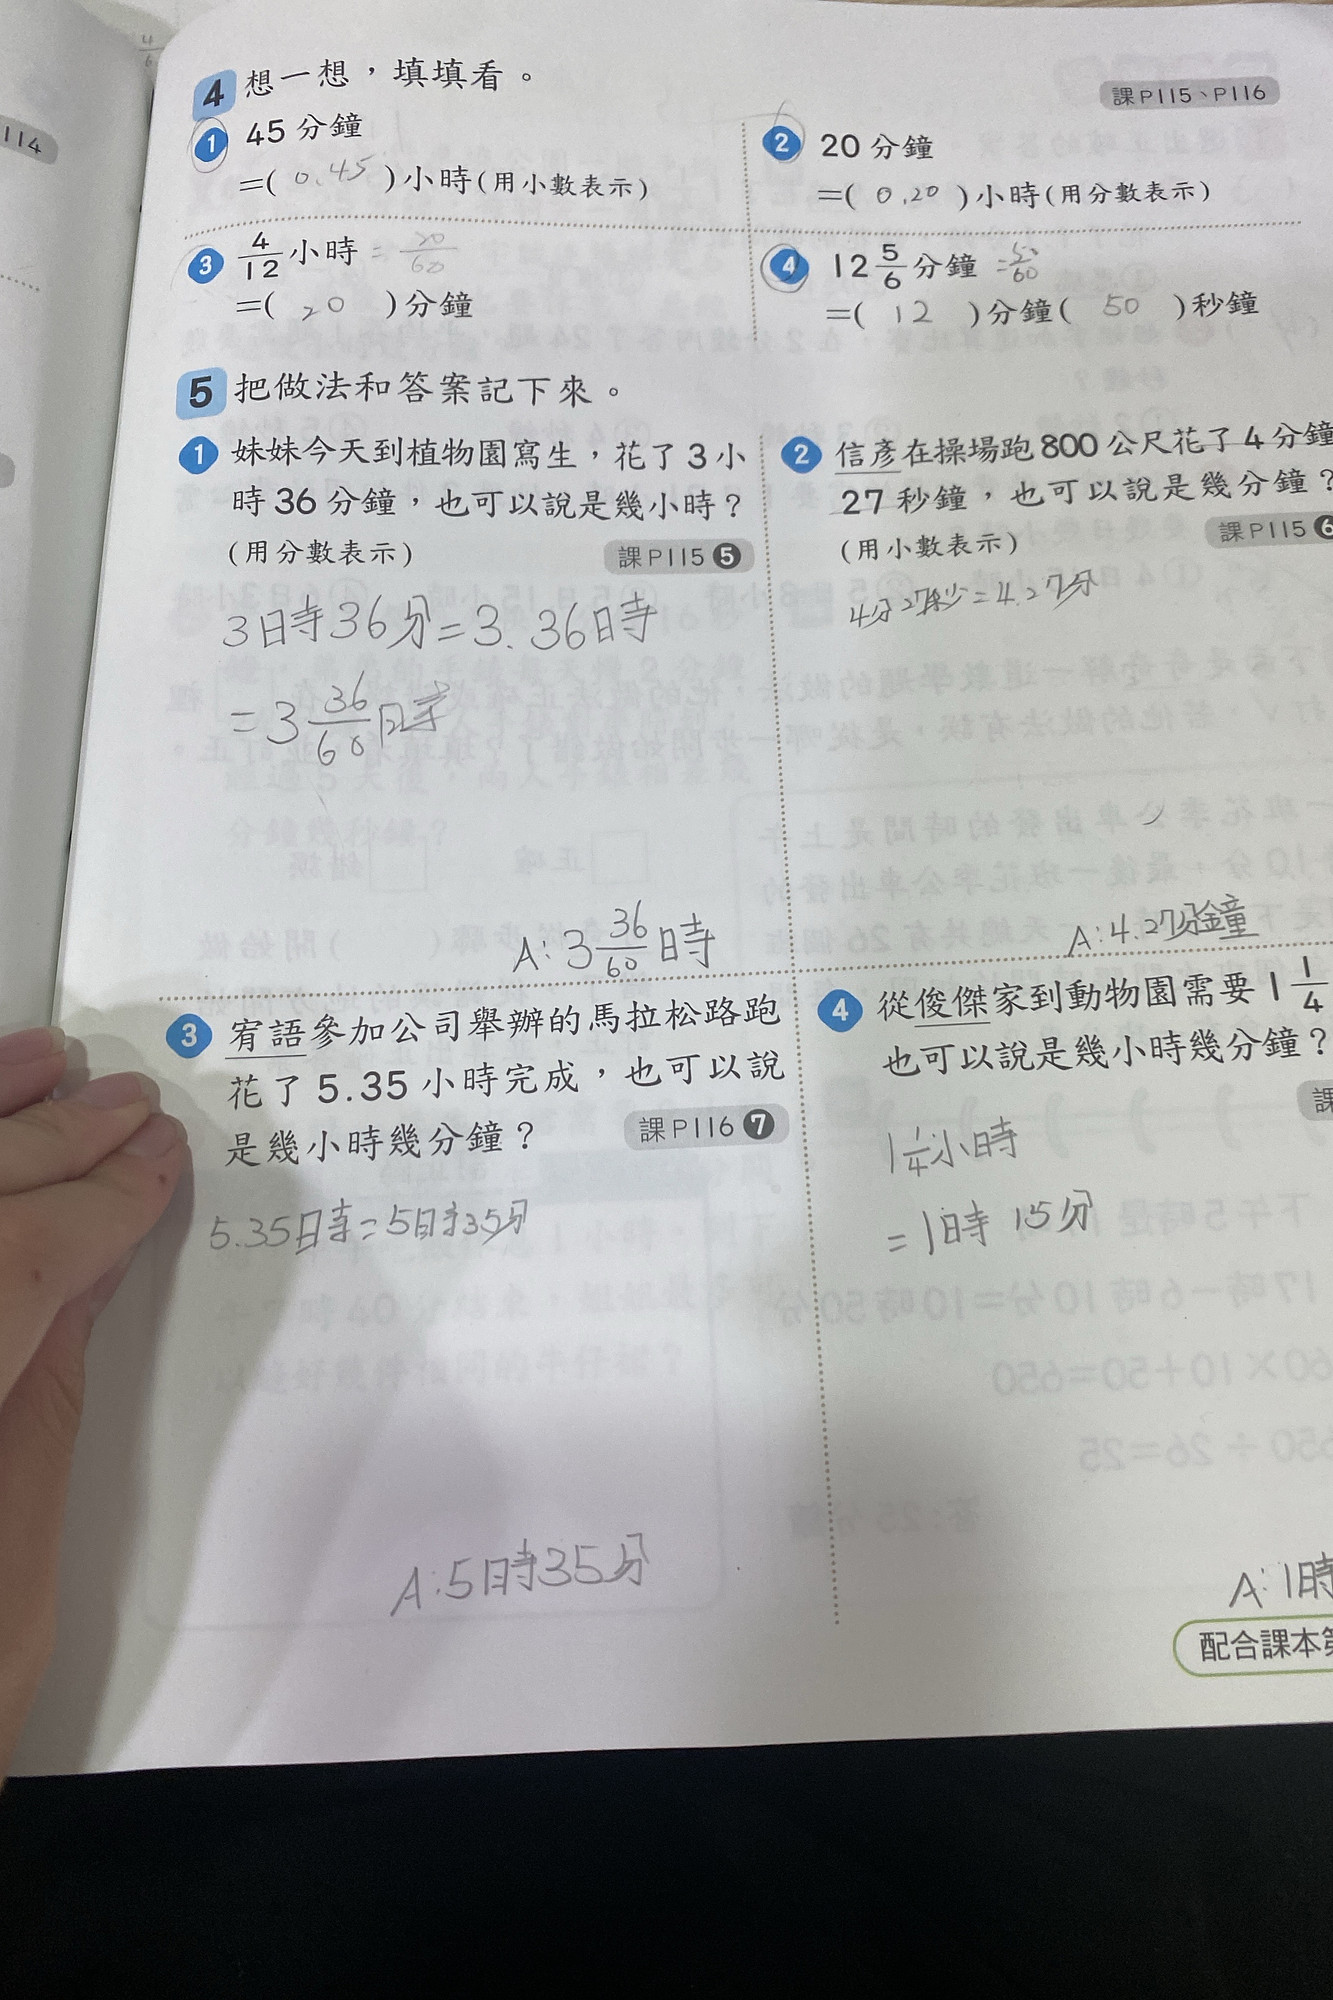 114
4 想一想，填填看。
課P115、P116
1 45分鐘
=( 0.45 )小時(用小數表示)
2 20分鐘
=( 0.20 )小時(用分數表示)
3 4/12小時 = 20/60
=( 20 )分鐘
4 12 5/6分鐘 = 50/60
=( 12 )分鐘( 50 )秒鐘
5 把做法和答案記下來。
1 妹妹今天到植物園寫生，花了3小
時36分鐘，也可以說是幾小時？
(用分數表示) 課P115 5
3時36分=3.36時
=3 36/60時
A:3 36/60時
2 信彥在操場跑800公尺花了4分鐘
27秒鐘，也可以說是幾分鐘？
(用小數表示) 課P115 6
4分27秒=4.27分
A:4.27分鐘
3 宥語參加公司舉辦的馬拉松路跑
花了5.35小時完成，也可以說
是幾小時幾分鐘？ 課P116 7
5.35時=5時35分
A:5時35分
4 從俊傑家到動物園需要1 1/4
也可以說是幾小時幾分鐘？
課
1 1/4小時
=1時15分
A:1時
配合課本第